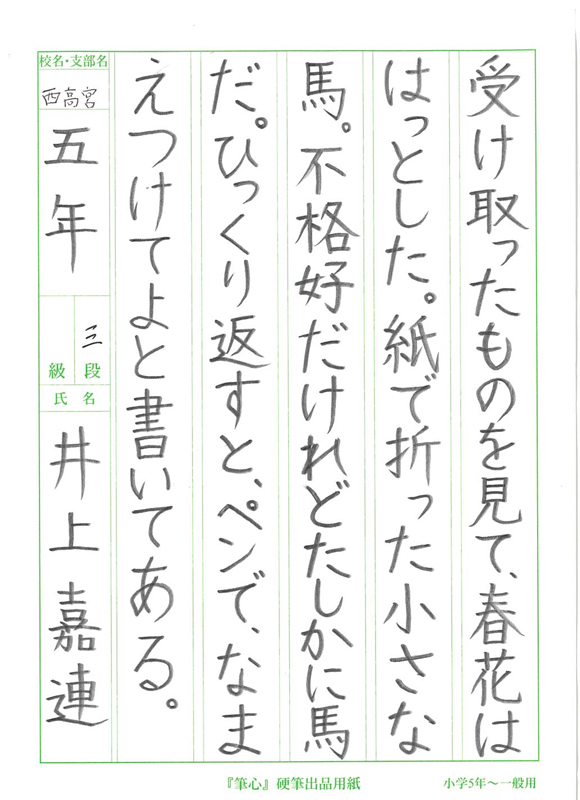 受け取ったものを見て、春花は
はっとした。紙で折った小さな
馬。不格好だけれどたしかに馬
だ。ひっくり返すと、ペンで、なま
えつけてよと書いてある。
校名・支部名
西高宮
五年
三段
級
氏名
井上嘉連
『筆心』硬筆出品用紙
小学5年〜一般用